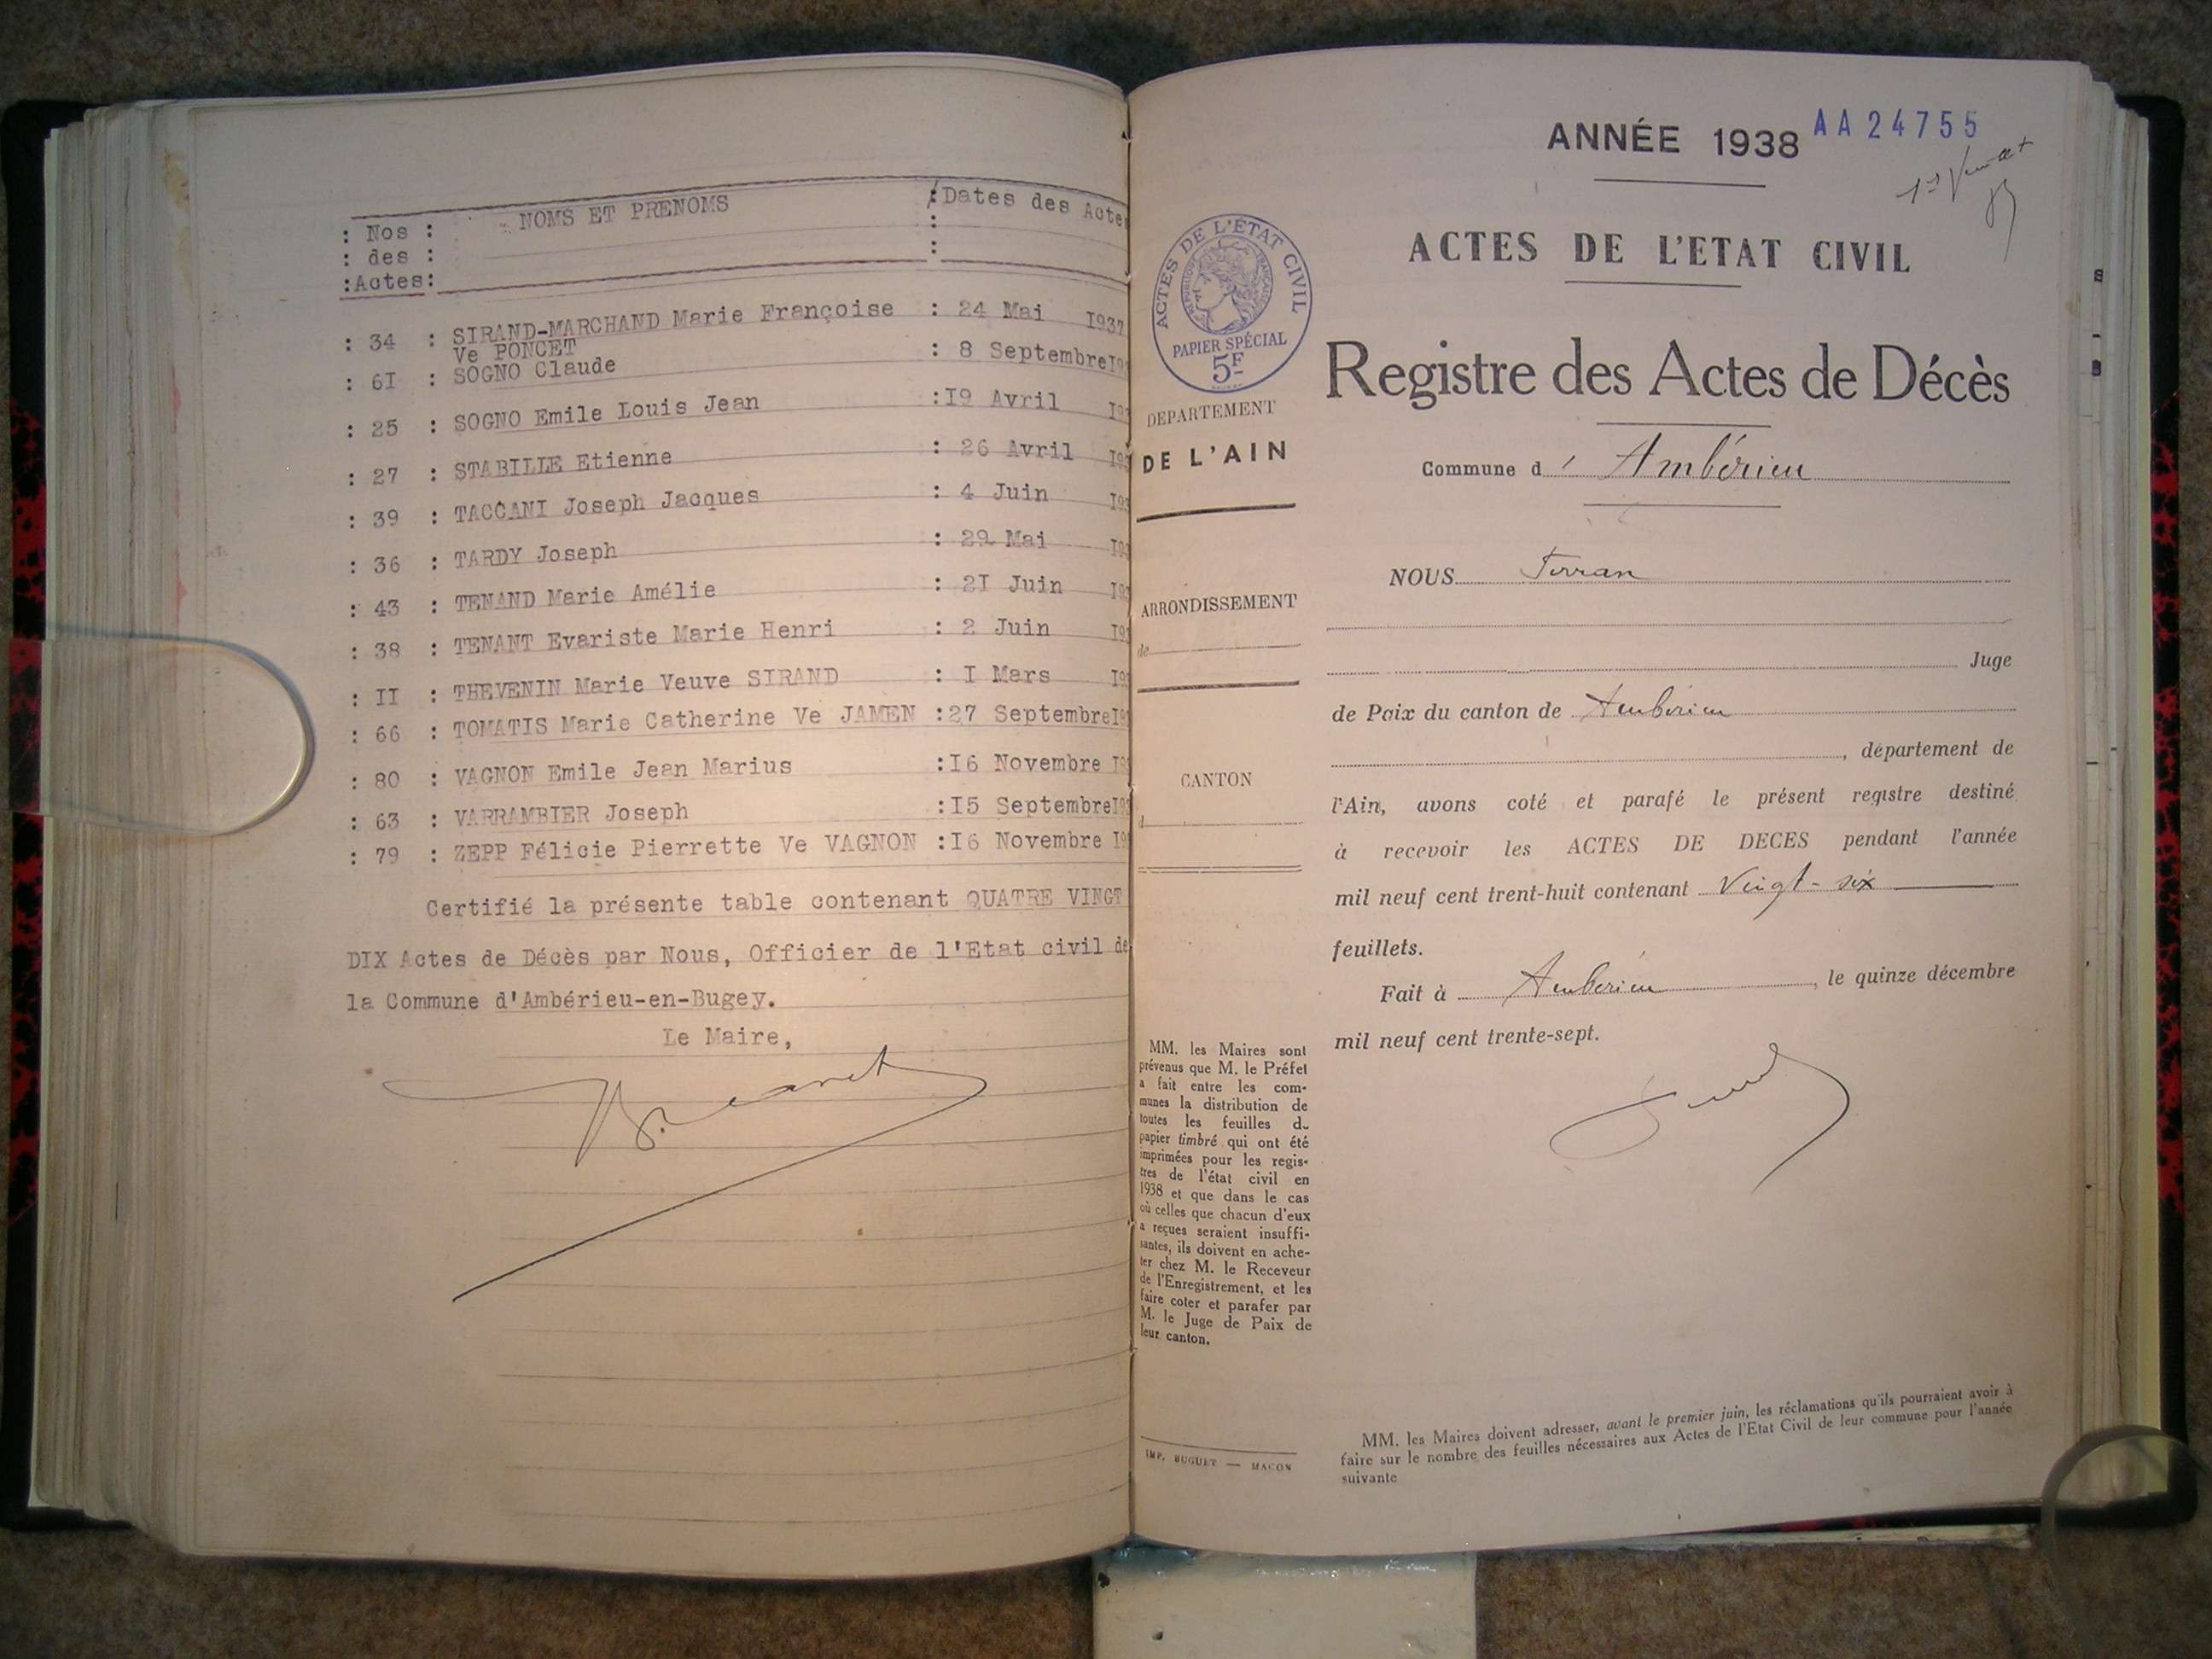 : Nos : NOMS ET PRENOMS : Dates des Actes
: des :
:Actes:
: 34 : SIRAND-MARCHAND Marie Françoise : 24 Mai 1937
Ve PONCET
: 6I : SOGNO Claude : 8 Septembre
: 25 : SOGNO Emile Louis Jean :I9 Avril
: 27 : STABILLE Etienne : 26 Avril
: 39 : TACCANI Joseph Jacques : 4 Juin
: 36 : TARDY Joseph : 29 Mai
: 43 : TENAND Marie Amélie : 2I Juin
: 38 : TENANT Evariste Marie Henri : 2 Juin
: II : THEVENIN Marie Veuve SIRAND : I Mars
: 66 : TOMATIS Marie Catherine Ve JAMEN :27 Septembre
: 80 : VAGNON Emile Jean Marius :I6 Novembre
: 63 : VARRAMBIER Joseph :I5 Septembre
: 79 : ZEPP Félicie Pierrette Ve VAGNON :I6 Novembre
Certifié la présente table contenant QUATRE VINGT
DIX Actes de Décès par Nous, Officier de l'Etat civil de
la Commune d'Ambérieu-en-Bugey.
Le Maire,
ACTES DE L'ÉTAT CIVIL
RÉPUBLIQUE FRANÇAISE
PAPIER SPÉCIAL
5F
DEPARTEMENT
DE L'AIN
ARRONDISSEMENT
de
CANTON
d
MM. les Maires sont
prévenus que M. le Préfet
a fait entre les com-
munes la distribution de
toutes les feuilles du
papier timbré qui ont été
imprimées pour les regis-
tres de l'état civil en
1938 et que dans le cas
où celles que chacun d'eux
a reçues seraient insuffi-
santes, ils doivent en ache-
ter chez M. le Receveur
de l'Enregistrement, et les
faire coter et parafer par
M. le Juge de Paix de
leur canton.
IMP. BUGUET — MACON
ANNÉE 1938 AA24755
ACTES DE L'ETAT CIVIL
Registre des Actes de Décès
Commune d' Ambérieu
NOUS Ferran
Juge
de Paix du canton de Ambérieu
, département de
l'Ain, avons coté et parafé le présent registre destiné
à recevoir les ACTES DE DECES pendant l'année
mil neuf cent trent-huit contenant Vingt-six
feuillets.
Fait à Ambérieu, le quinze décembre
mil neuf cent trente-sept.
MM. les Maires doivent adresser, avant le premier juin, les réclamations qu'ils pourraient avoir à
faire sur le nombre des feuilles nécessaires aux Actes de l'Etat Civil de leur commune pour l'année
suivante